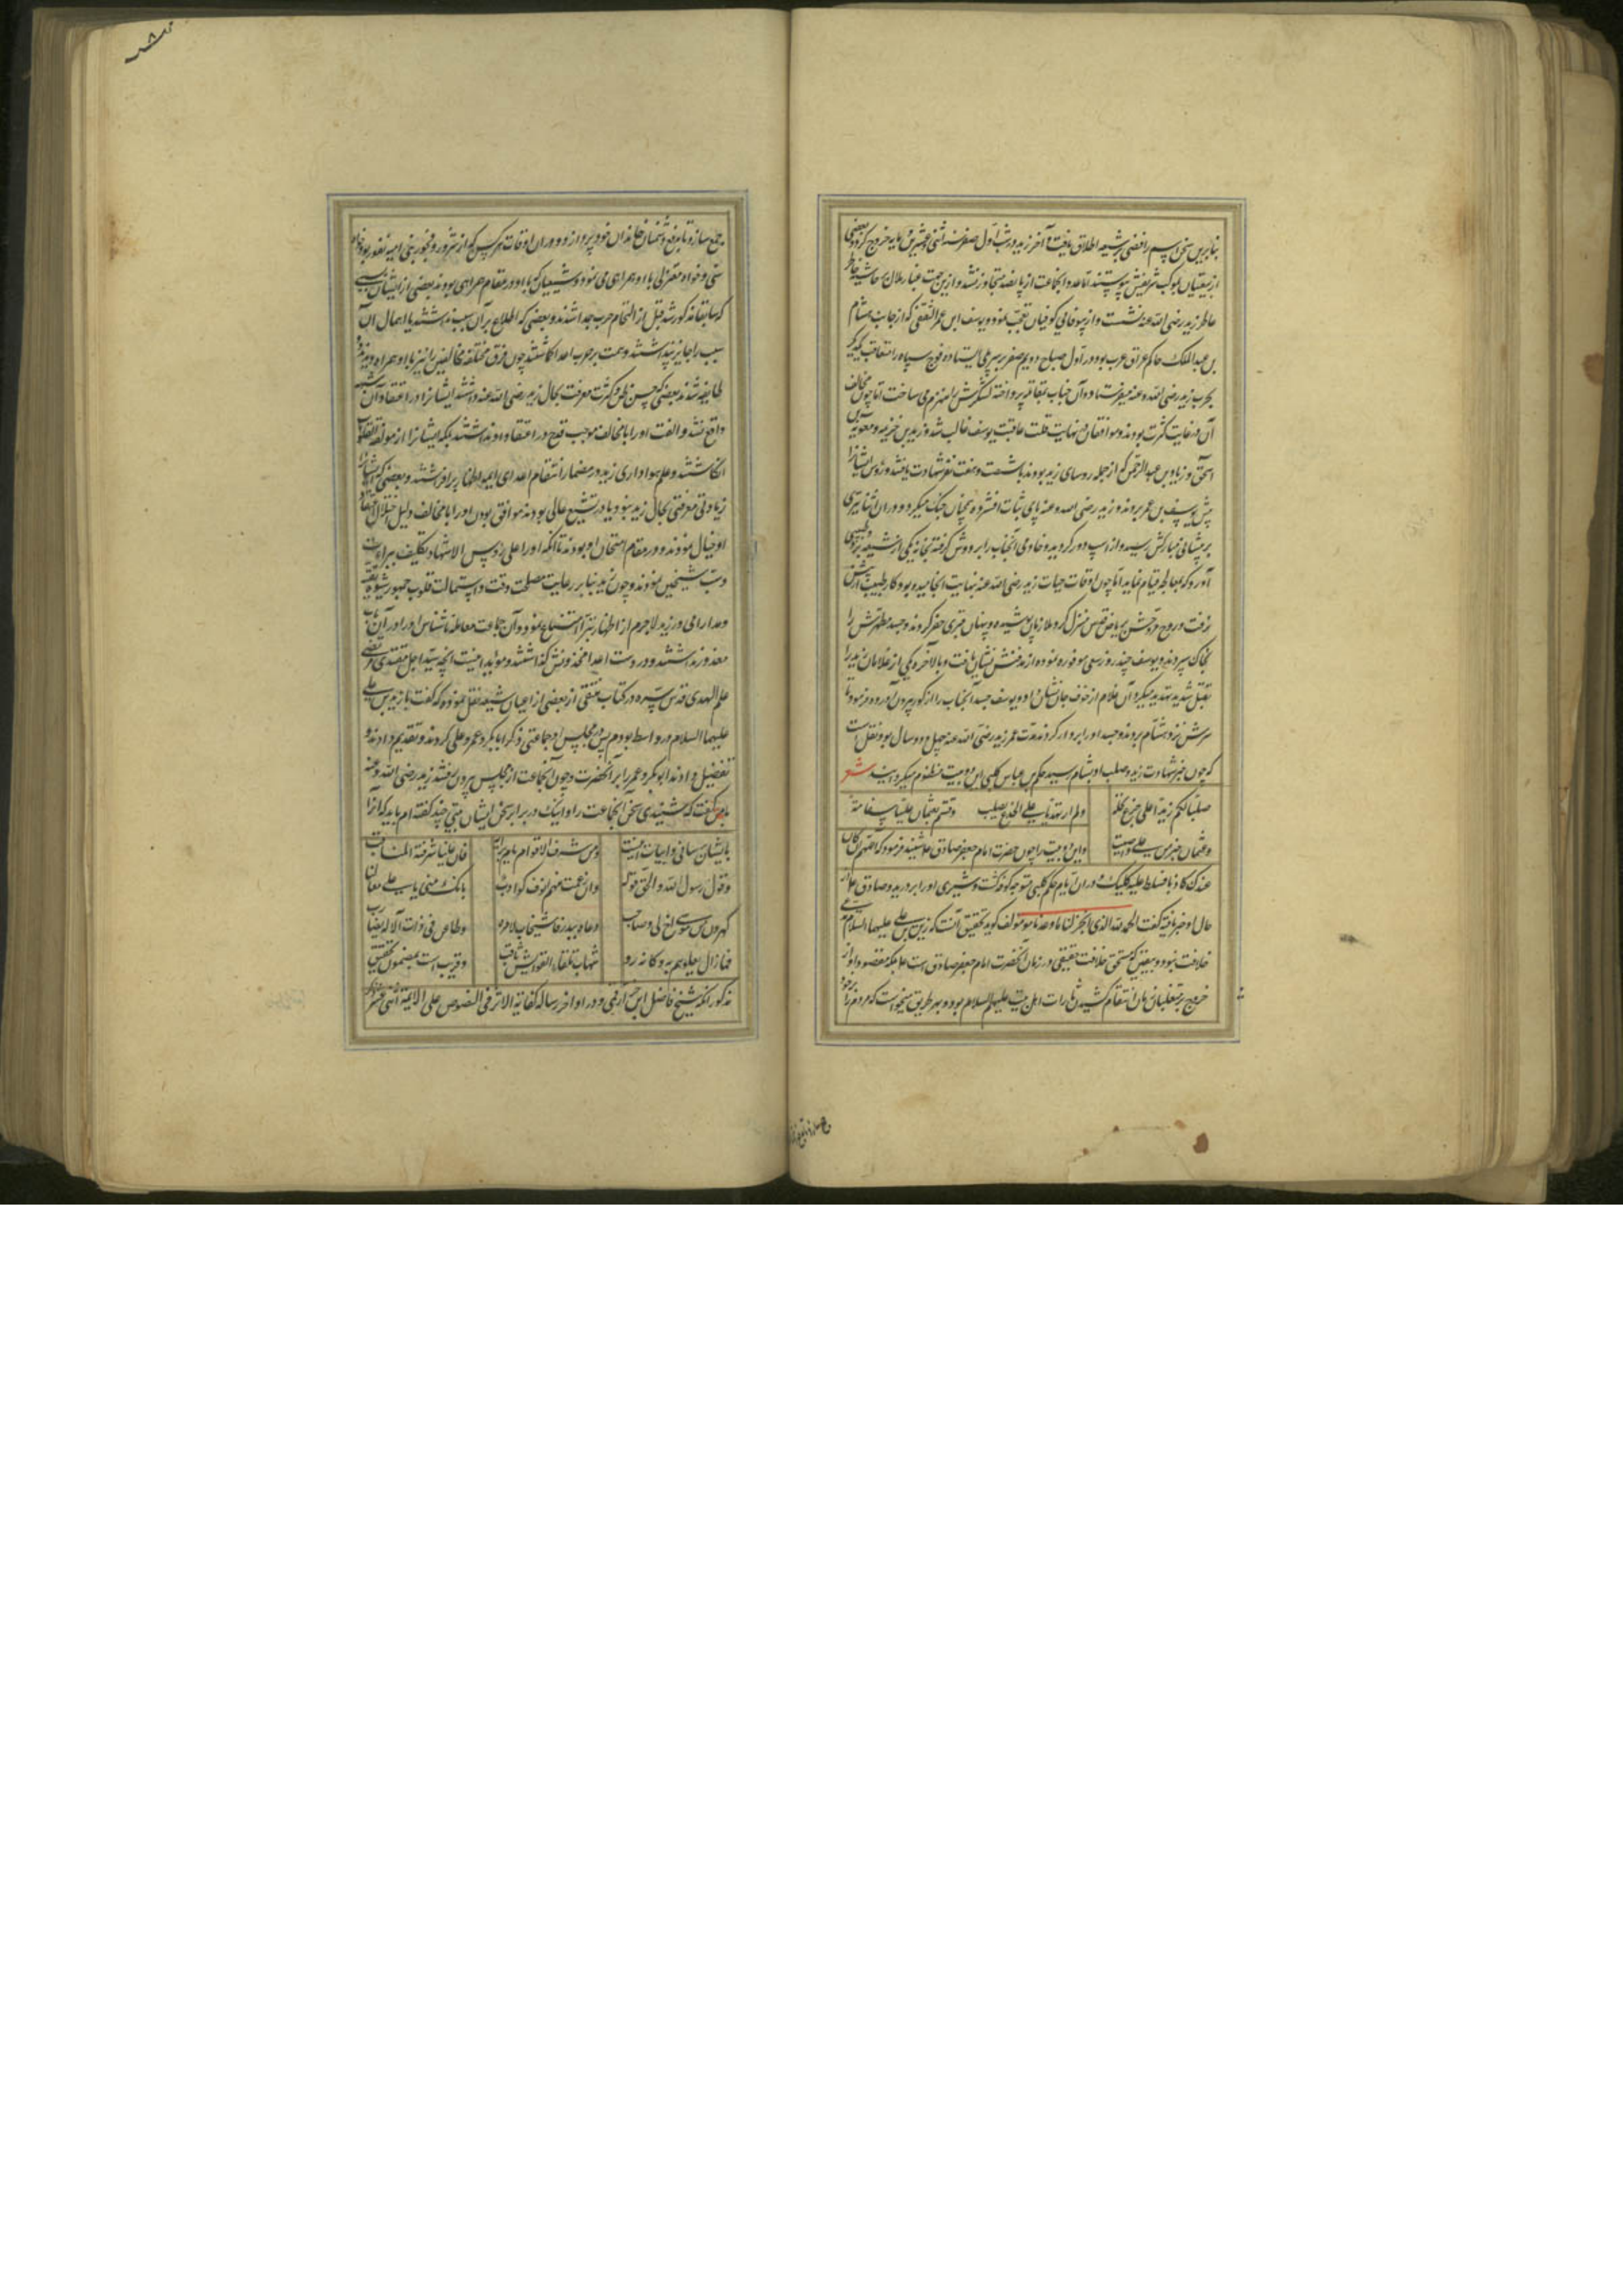 بنابرین سخن اسم رافضی بر شیعه اطلاق یافت و آخر زید در شب اول صفر سنه اثنی و عشرین و مایه خروج کرد و بعضی
از متقیان بموکب شریفش پیوستند اما عدد آنجماعت از پانصد متجاوز نشد و ازین جهت غبار ملال بر حاشیه خاطر
عاطر زید رضی الله عنه نشست و از بیوفائی کوفیان تعجب نمود و یوسف ابن عمر الثقفی که از جانب هشام
بن عبدالملک حاکم عراق عرب بود در اول صباح دویم صفر بر سر پلی ایستاده فوج سپاه را متعاقب یکدیگر
بحرب زید رضی الله عنه میفرستاد و آن جناب بمقاتله پرداخته لشکرش را منهزم می ساخت اما چون مخالف
آن در غایت کثرت بودند و موافقان در نهایت قلت عاقبت یوسف غالب شد و زید بن خزیمه و معویه بن
اسحق و زیاد بن عبدالرحمن که از جمله روسای زید بودند با شصت و هفت نفر شهادت یافتند و رؤس ایشانرا
پیش یوسف بن عمر بردند و زید رضی الله عنه پای ثبات افشرده همچنان جنگ میکرد و در آن اثنا تیری
بر پیشانی مبارکش رسید و از اسب دور گردید و خادمی آنجناب را بر دوش گرفته بخانه یکی از شیعه برد و طبیبی
آورد که بمعالجه قیام نماید اما چون اوقات حیات زید رضی الله عنه بنهایت انجامیده بود کار طبیب از پیش
نرفت و روح پرفتوحش بریاض قدس منزل کرد و ملازمان پوشیده و پنهان قبری حفر کردند و جسد مطهرش را
بخاک سپردند و یوسف چند روز سعی موفوره نموده از مدفنش نشان یافت و بالاخره یکی از غلامان زید را
بقتل تهدید میکرد آن غلام از خوف جان نشان داد و یوسف جسد آنجناب را از گور بیرون آورده فرمود تا
سرش نزد هشام بردند و جسد او را بردار کردند مدت عمر زید رضی الله عنه چهل و دو سال بود نقل است
که چون خبر شهادت زید و صلب او بشام رسید حکم بن عباس کلبی این دو بیت منظوم گردانید شعر
صلبنا لکم زیدا علی جذع نخلة ولم ار مهدیا علی الجذع یصلب وقستم بعثمان علیا سفاهة
وعثمان خیر من علی واطیب و این دو بیت را چون حضرت امام جعفر صادق علیه شنید فرمود که اللهم ان کان
عندک کاذبا فسلط علیه کلبک و در آن ایام حکم کلبی متوجه کوفه گشت و شیری او را بر درید و صادق علیه از
حال او خبر یافته گفت الحمد لله الذی انجز لنا ما وعدنا مولف گوید تحقیق آنست که زید بن علی علیهما السلام مدعی
خلافت نبود و بیقین که مستحق خلافت حقیقی در زمان آنحضرت امام جعفر صادق است علیه بلکه مقصود او از
خروج بر متغلبان زمان انتقام کشیدن ثارات اهل بیت علیهم السلام بود و بهر طریق میخواست که مردم را بر خود
جمع سازد تا بدفع دشمنان خاندان خود پردازد و در آن اوقات هر کس که از شرور و فجور بنی امیه نفور بود خواه
سنی و خواه معتزلی با او همراهی می نمود و شیعیان که با او در مقام همراهی بودند بعضی از ایشان بسببی
که سابقا مذکور شد قبل از التحام حرب جدا شدند و بعضی که اطلاع بر آن سبب نداشتند یا اهمال آن
سبب را جایز نپنداشتند و همت بر حرب اعدا گماشتند چون فرق مختلفه مخالفین را نیز با او همراه دیدند دو
طایفه شدند بعضی که حسن ظن و کثرت معرفت بحال زید رضی الله عنه داشتند ایشانرا در اعتقاد آن شبهه
واقع نشد و الفت او را با مخالف موجب قدح در اعتقاد او ندانستند بلکه ایشانرا از مولفة القلوب
انگاشتند و علم هواداری زید در مضمار انتقام اعدای ایمه اطهار برافراشتند و بعضی که ایشانرا
زیادتی معرفتی بحال زید نبود یا در تشیع غالی بودند موافق بودن او را با مخالف دلیل اختلال اعتقاد
او خیال نمودند و در مقام امتحان او بودند تا آنکه او را علی رؤس الاشهاد تکلیف ببراءت
و سب شیخین نمودند و چون زید بنابر رعایت مصلحت وقت و استمالت قلوب جمهور شیوه تقیه
و مدارا می ورزید لاجرم از اظهار تبرا امتناع نمود و آن جماعت معامله ناشناس او را در آن باب
معذور نداشتند و در دست اعدا مخذولش گذاشتند و موید اینست آنچه سید اجل مقتدی مرتضی
علم الهدی قدس سره در کتاب منتقی از بعضی از اعیان شیعه نقل نموده که گفت با زید بن علی
علیهما السلام در واسط بودم پس در مجلس او جماعتی ذکر ابابکر و عمر و علی کردند و تقدیم دادند و
تفضیل دادند ابوبکر و عمر را بر آنحضرت و چون آنجماعت از مجلس بیرون رفتند زید رضی الله عنه
بمن گفت که شنیدی سخن آنجماعت را و اینک در برابر سخن ایشان بیتی چند گفته ام باید که آنرا
بایشان رسانی و ابیات اینست ومن شرف الاقوام یوما برایه فان علیا شرفته المناقب
وقول رسول الله والحق قوله وان رغمت منهم انوف کواذب بانک منی یا علی معالنا
کهرون من موسی اخ لی وصاحب دعاه ببدر فاستجاب لامره وطاعن فی ذات الاله یضارب
فما زال یعلوهم به وکانه شهاب تلقاه القوابس ثاقب و قریب است بمضمون تحقیق
مذکور آنکه شیخ فاضل ابن خزاز قمی در اواخر رساله کفایة الاثر فی النصوص علی الایمة اثنی عشر